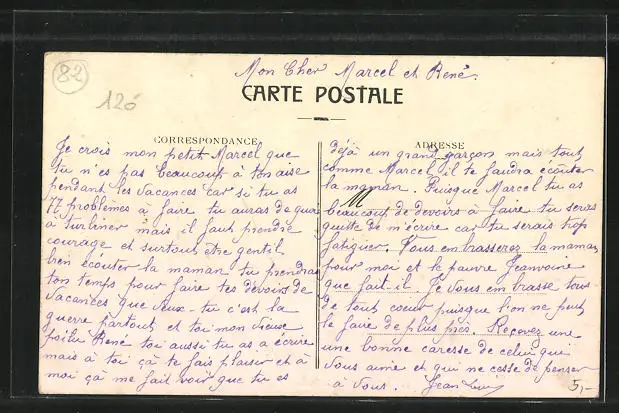 82
120
Mon Cher Marcel et René.
CARTE POSTALE
CORRESPONDANCE
Je crois mon petit Marcel que
tu n'es pas beaucoup à ton aise
pendant les vacances car si tu as
77 problèmes à faire tu auras de quoi
à turbiner mais il faut prendre
courage et surtout être gentil
bien écouter la maman tu prendras
ton temps pour faire tes devoirs de
vacances que veux-tu c'est la
guerre partout et toi mon vieux
poilu René toi aussi tu as a écrire
mais à toi çà te fais plaisir et à
moi çà me fait voir que tu es
ADRESSE
déjà un grand garçon mais tout
comme Marcel il te faudra écouter
la maman. Puisque Marcel tu as
M
beaucoup de devoirs à faire tu seras
quitte de m'écrire car tu serais trop
fatiguer. Vous embrasserez la maman
pour moi et le pauvre
que fait il. Je vous embrasse tous
de tout coeur puisque l'on ne peut
le faire de plus près. Recevez une
une bonne caresse de celui qui
vous aime et qui ne cesse de penser
à vous. Jean
5,-